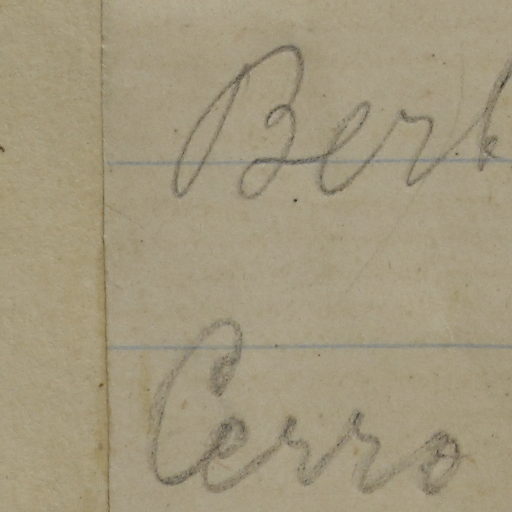 Berk
Cerro